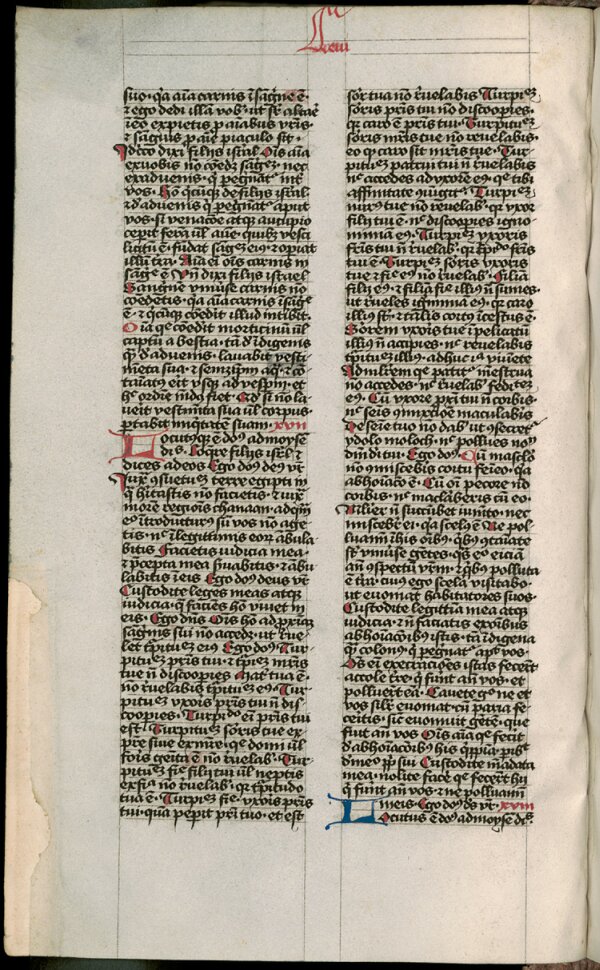 Leui
suo · qa aīa carnis ī sāgīne ē ·
⁊ ego dedi illā vob · ut sr̄ altaē
ī eo expietis ꝓ aīabus vr̄is ·
⁊ sāguis ꝓ aīe piaculo sit ·
Idcirco dixi filijs isrl̄ Ois aīa
ex vobis nō cōedȝ sāgeȝ · nec
ex aduenis · q̄ pegnātr int̄
vos · Ho qcūqȝ de filijs isrl̄
⁊ d̄ aduenis q̄ pegnātr aput
vos · si venacōe atqȝ aucupio
cepit ferā ul̄ aueȝ · quibȝ vesci
licitū ē · fūdat sāgȝ eiꝰ · ⁊ opiat
illū tr̄a · Aīa eī ois carnis in
sāgīe ē Vn̄ dixi filijs israel
Sanguineȝ vniuse carnis nō
coedetis · qa aīa carnis ī sāgīe
ē · ⁊ qcūqȝ coedit illud intibit ·
Oīa q̄ coedit morticinū ul̄
captū a bestia · tā d̄ īdigenis
q̄ȝ d̄ aduenis · lauabit vesti-
mēta sua · ⁊ semetip̄m aq · ⁊ cō-
taīatꝰ erit vsqȝ ad vesp̄m · et
hͨ ordīe mūdꝰ fiet · Qd̄ si nō la-
uerit vestimta sua ul̄ corpus ·
portabit īiqtatē suam · xvii
Locutusqȝ ē dn̄s ad moyse
dīs · Loqre filijs isrl̄ · ⁊
dices ad eos Ego dn̄s deꝰ vr̄
Iuxͣ ꝯsuetudīeȝ terre egipti in
q̄ hītastis nō facietis · ⁊ iuxͣ
morē regiois chanaan · ad qm̄
eo ītroducturꝰ sū vos nō age-
tis · nͨ ī legittimis eoꝝ abula
bitis Facietis iudicia mea ·
⁊ p̄cepta mea s̄uabitis · ⁊ ābu
labitis ī eis Ego dn̄s deus vr̄
Custodite leges meas atqȝ
iudicia · q̄ faciēs ho viuet in
eis · Ego dn̄s Ois ho ad pxīaȝ
sāgīnis sui nō accedet · ut r̄ue-
let t̄pitudīeȝ eiꝰ Ego dn̄s · Tur-
pitudīeȝ pr̄is tui · ⁊ t̄pitudīeȝ mr̄is
tue n̄ discoopies · Mat̄ tua ē ·
nō r̄uelabis t̄pitudīeȝ eiꝰ · Tur-
pitudīeȝ vxoris pr̄is tui n̄ dis-
coopies · Turpitudo eī pr̄is tui
est · Turpitudīeȝ sororis tue ex
pr̄e siue ex mr̄e · que domi ul̄
foris genita ē nō r̄uelabis · Tur-
pitudīeȝ filie filij tui ul̄ neptis
ex filia nō r̄uelabis · qꝛ t̄pitudo
tua ē · Turpitudīeȝ filie vxoris pr̄is
tui · quā pep̄it pr̄i tuo · et est
soror tua nō r̄uelabis Turpitudīeȝ
sororis pr̄is tui nō discoopies ·
qꝛ caro ē pr̄is tui · Turpitudīeȝ
sororis mr̄is tue nō reuelabis ·
eo qꝛ caro sit mr̄is tue · Tur-
pitudīeȝ patrui tui n̄ reuelabis
nͨ accedes ad vxorē eiꝰ · q̄ tibi
affinitate ꝯiūgitr · Turpitudīeȝ
nurꝰ tue nō reuelabis · qꝛ vxor
filij tui ē · nͨ discoopies igno-
miniā eiꝰ · Turpitudīeȝ vxoris
fr̄is tui n̄ r̄uelabis · qꝛ t̄pitudo fr̄is
tui ē · Turpitudīeȝ sororis vxoris
tue ⁊ filie eiꝰ nō r̄uelabis · Filiā
filij eiꝰ · ⁊ filiā filie illiꝰ n̄ sumes ·
ut r̄ueles ignomīiā eiꝰ · qꝛ caro
illiꝰ st̄ · ⁊ talis coitꝰ īcestus ē ·
Sororem vxoris tue ī pelicatū
illiꝰ n̄ accipies · nͨ reuelabis
t̄pitudīeȝ illiꝰ · adhuc ea viuēte
Ad mlīerē que patitr mestrua
nō accedes · nͨ r̄uelabis feditateȝ
eiꝰ · Cū vxore pxi tui n̄ coibis ·
nͨ seīs ꝯmixtioē maculabis
De seīe tuo nō dab ut ꝯsecretr
ydolo moloch · nͨ pollues nom̄
dn̄i di tui · Ego dn̄s · Cū masclo
nō ꝯmiscebis coitu feīeo · qa
abhoīaco ē · Cū oī pecore nō
coibis · nͨ maclaberis cū eo ·
Mulier n̄ succūbet iumēto · nec
miscebitr ei · qa scelꝰ ē Ne pol-
luamī ī hīs oībꝰ · qbꝰ ꝯtaīate
st̄ vniuse gētes · qs eo eiciā
an̄ ꝯspectū vr̄m · ⁊ qbꝰ polluta
ē tr̄a · cuiꝰ ego scela visitabo ·
ut euomat habitatores suos ·
Custodite legittīa mea atqȝ
iudicia · ⁊ n̄ faciatis ex oībus
abhoīacoībꝰ istis · tā īdigena
q̄ȝ colonꝰ · q̄ pegnatr apd̄ vos ·
Oēs eī execracioēs istas fecert̄
accole tr̄e · q̄ funt̄ an̄ vos · et
polluert̄ eā · Cauete gͦ ne et
vos silr̄ euomat · cū paria fe-
ceritis · sic̄ euomuit gētē · que
fuit an̄ vos Ois aīa q̄ fecit
d̄ abhoīacoībꝰ his q̄ppiā · pibit
d̄ mͦeo pp̄li sui Custodite mādata
mea · nolite facē q̄ fecert̄ hij
q̄ funt̄ an̄ vos · ⁊ ne polluamī
ī meis · Ego dn̄s ds̄ vr̄ · xviii
Locutus ē dn̄s ad moysē dīs ·